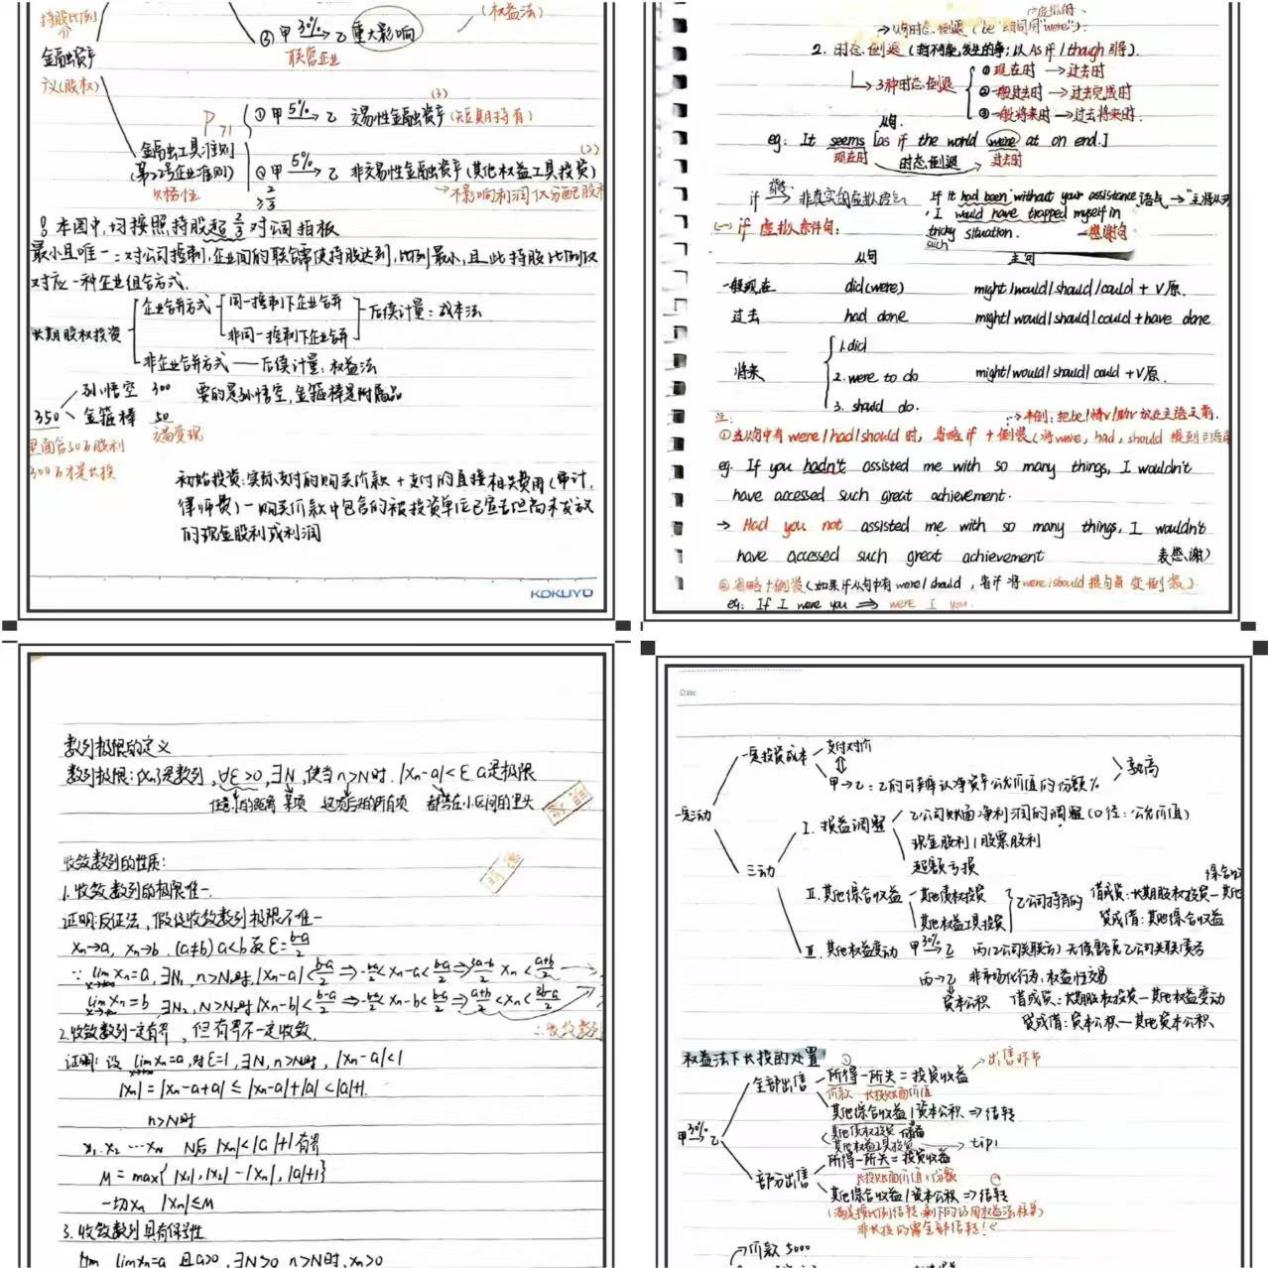 持股比例
金融资产
议(股权)
(权益法)
③ 甲 30%→ 乙 重大影响
联营企业
(3)
① 甲 5%→ 乙 交易性金融资产 (短期持有)
金融工具准则
(第22号企业准则)
(2)
② 甲 5%→ 乙 非交易性金融资产 (其他权益工具投资)
不影响利润 仅分配股利
本图中,均按照持股超 2/3 对词指板
最小且唯一:对公司控制,企业间的联合需使持股达到,比例最小,且此持股比例仅
对应一种企业组合方式.
长期股权投资
企业合并方式
同一控制下企业合并
非同一控制下企业合并
后续计量:成本法
非企业合并方式——后续计量:权益法
350
孙悟空 300 要的是孙悟空,金箍棒是附属品
金箍棒 50
里面含50万股利
300万才是长投
初始投资:实际支付的购买价款+支付的直接相关费用(审计,
律师费)-购买价款中包含的被投资单位已宣告但尚未发放
的现金股利或利润
KOKUYO
→从句时态倒退 (be 动词用"were")
2. 时态倒退 (指不可能发生的事;以 As if / though 引导).
3种时态倒退
①现在时→过去时
②一般过去时→过去完成时
③一般将来时→过去将来时.
从句.
eg: It seems [as if the world were at on end.]
现在时 时态倒退 过去时
if → 非真实的虚拟语气
If it had been without your assistance,
I would have trapped myself in
such
tricky situation. —感谢句
(一) if 虚拟条件句:
从句 主句
一般现在 did(were) might/would/should/could + V原.
过去 had done might/would/should/could + have done
将来
1. did
2. were to do might/would/should/could +V原.
3. should do.
注:
①当从句中有 were/had/should 时, 省略 if + 倒装 (将were, had, should 提到主语前
eg. If you hadn't assisted me with so many things, I wouldn't
have accessed such great achievement.
→ Had you not assisted me with so many things, I wouldn't
have accessed such great achievement 表感谢)
②省略+倒装(如果 if 从句中有 were/should , 省 if 将 were/should 提句首 变倒装)
eg: If I were you ⇒ were I you.
数列极限的定义
数列极限:{xn}是数列, ∀ε>0, ∃N, 使当 n>N时. |xn-a|<ε a是极限
任意小的距离 某项
收敛数列的性质:
1.收敛数列的极限唯一.
证明:反证法, 假设收敛数列极限不唯一
xn→a, xn→b. (a≠b) a<b 取 ε=b-a/2
∵ lim xn=a, ∃N1, n>N1时, |xn-a|<b-a/2 ⇒ -b-a/2<xn-a<b-a/2 ⇒ 3a-b/2<xn<a+b/2
lim xn=b ∃N2, n>N2时 |xn-b|<b-a/2 ⇒ -b-a/2<xn-b<b-a/2 ⇒ a+b/2<xn<3b-a/2
2.收敛数列一定有界, 但有界不一定收敛.
证明: 设 lim xn=a, 对ε=1, ∃N, n>N时, |xn-a|<1
|xn|=|xn-a+a|≤|xn-a|+|a|<|a|+1.
n>N时
x1. x2 ⋯ xN N后 |xn|<|a|+1有界
M=max{|x1|,|x2|⋯|xn|,|a|+1}
一切xn |xn|≤M
3.收敛数列具有保号性
lim xn=a 且a>0, ∃N>0 n>N时, xn>0
Date
一是投资成本
支付对价
甲→乙:乙的可辨认净资产公允价值的份额%
孰高
三动
I. 损益调整
乙公司账面净利润的调整(口径:公允价值)
现金股利/股票股利
超额亏损
II.其他综合收益
其他债权投资
其他权益工具投资
乙公司持有的
借或贷:长期股权投资—其他
贷或借:其他综合收益
III. 其他权益变动
甲 30%→ 乙
丙→乙 非市场化行为,权益性交易
资本公积
借或贷:长期股权投资—其他权益变动
贷或借:资本公积—其他资本公积
权益法下长投的处置
甲 30%→ 乙
全部出售
所得-所失=投资收益
价款 长投账面价值
出售环节
其他综合收益/资本公积 ⇒ 结转
其他债权投资
其他权益工具投资 → tip1
部分出售
所得-所失=投资收益
长投账面价值×份额
其他综合收益/资本公积 ⇒ 结转
价款 5000